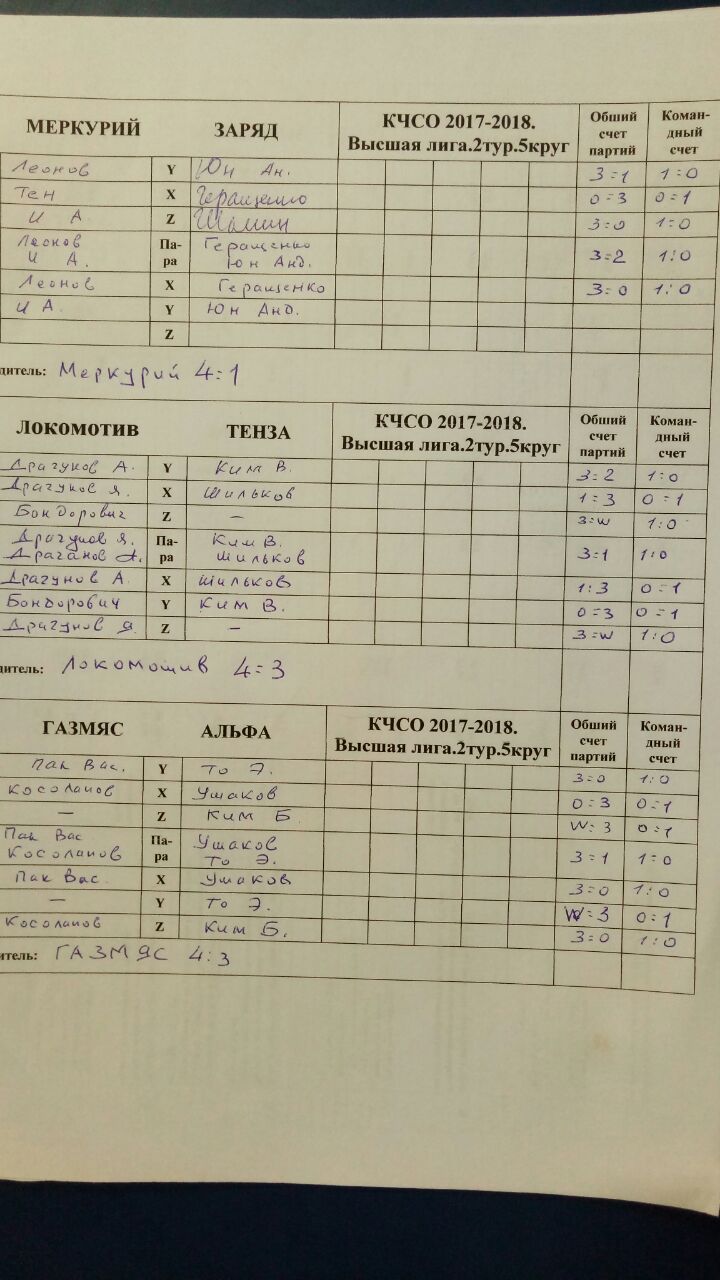 МЕРКУРИЙ ЗАРЯД КЧСО 2017-2018. Высшая лига.2тур.5круг Обший счет партий Коман-дный счет
Леонов Y Юн Ан. 3=1 1=0
Тен X Геращенко 0=3 0=1
И А Z Шамин 3=0 1:0
Леонов И А. Па-ра Геращенко Юн Анд. 3=2 1:0
Леонов X Геращенко 3=0 1:0
И А. Y Юн Анд.
Z
дитель: Меркурий 4=1
ЛОКОМОТИВ ТЕНЗА КЧСО 2017-2018. Высшая лига.2тур.5круг Обший счет партий Коман-дный счет
Драгунов А. Y Ким В. 3=2 1:0
Драгунов Я. X Шильков 1=3 0=1
Бондорович Z — 3=w 1:0
Драгунов Я. Драганов А. Па-ра Ким В. Шильков 3=1 1:0
Драгунов А. X Шильков 1:3 0=1
Бондорович Y Ким В. 0=3 0=1
Драгунов Я. Z — 3=w 1:0
дитель: Локомотив 4=3
ГАЗМЯС АЛЬФА КЧСО 2017-2018. Высшая лига.2тур.5круг Обший счет партий Коман-дный счет
Пак Вас. Y То Э. 3=0 1:0
Косолапов X Ушаков 0=3 0=1
— Z Ким Б W=3 0=1
Пак Вас Косолапов Па-ра Ушаков То Э. 3=1 1=0
Пак Вас. X Ушаков 3=0 1:0
— Y То Э. W=3 0=1
Косолапов Z Ким Б. 3=0 1:0
итель: ГАЗМЯС 4:3